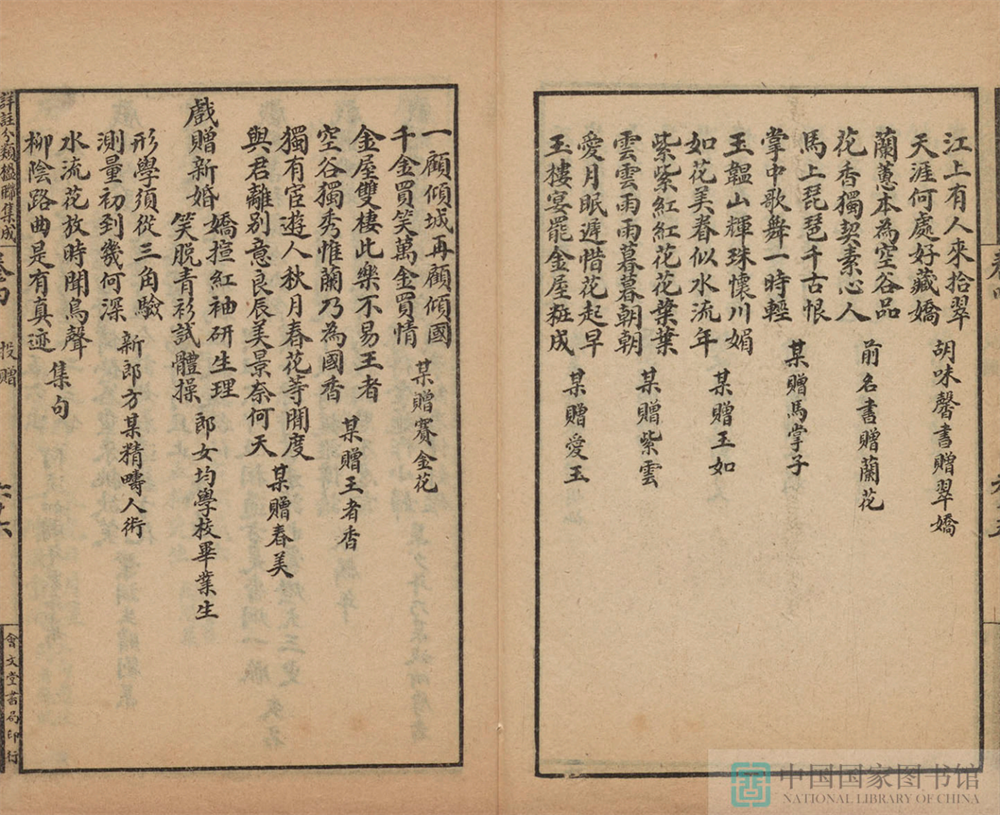 江上有人來拾翠
天涯何處好藏嬌
胡味馨書贈翠嬌
蘭蕙本為空谷品
花香獨契素心人
前名書贈蘭花
馬上琵琶千古恨
掌中歌舞一時輕
某贈馬掌子
玉韞山輝珠懷川媚
如花美眷似水流年
某贈玉如
紫紫紅紅花花葉葉
雲雲雨雨暮暮朝朝
某贈紫雲
愛月眠遲惜花起早
玉樓宴罷金屋粧成
某贈愛玉
一顧傾城再顧傾國
千金買笑萬金買情
某贈賽金花
金屋雙棲此樂不易王者
空谷獨秀惟蘭乃為國香
某贈王者香
獨有宦遊人秋月春花等閒度
與君離別意良辰美景奈何天
某贈春美
戲贈新婚
嬌揎紅袖研生理
笑脫青衫試體操
郎女均學校畢業生
形學須從三角驗
測量初到幾何深
新郎方某精疇人術
水流花放時聞鳥聲
柳陰路曲是有真迹
集句
詳註分類楹聯集成
投贈
會文堂書局印行
中国国家图书馆
NATIONAL LIBRARY OF CHINA